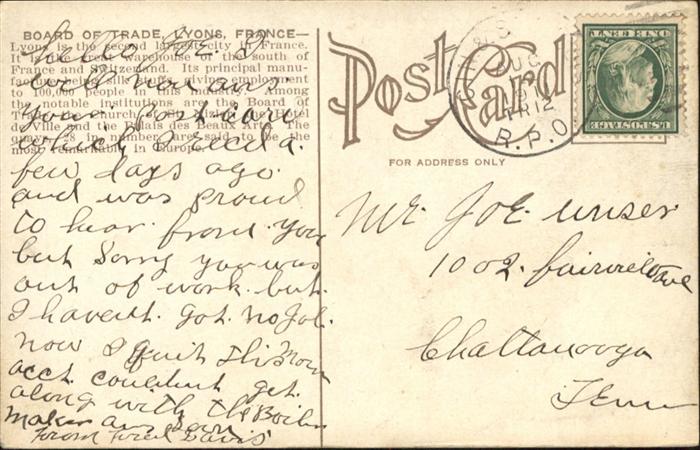 BOARD OF TRADE, LYONS, FRANCE—
Lyons is the second largest city in France.
It is the great warehouse of the south of
France and Switzerland. Its principal manu-
to 100,000 people in this industry. Among
the notable institutions are the Board of
de Ville and the Palais des Beaux Arts. The
in number, are said to be the
most remarkable in Europe.
Hello Joe. I
will you
your Post card
which I Rec'd a.
few days ago.
and was proud
to hear. from. you
but sorry you was
out of work. but.
I havent. got. no Job.
now I quit
acct. couldent get.
along with the Boiler
maker
From Fred Davis
Post Card
FOR ADDRESS ONLY
AUG
TR 12
R.P.O.
U.S. POSTAGE
ONE CENT
Mr. Joe unser
1002. fairview ave
Chattanooga
Tenn